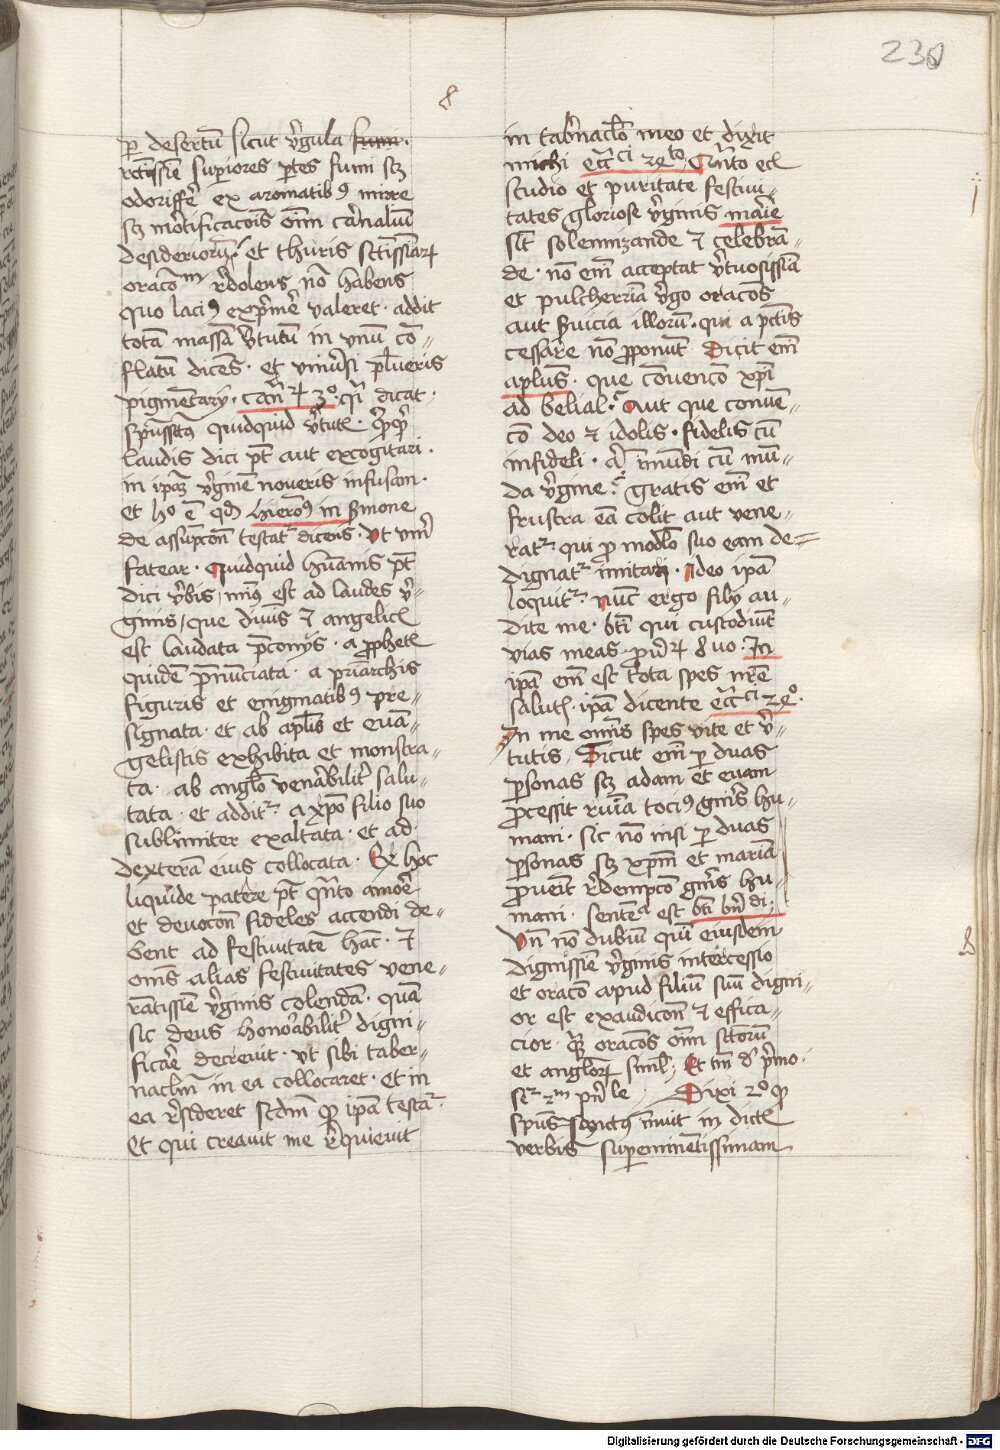 230
8
p desertū sicut v̄gula fumi.
rectissīe superiores ptes fumi scz
odoriffe ex aromatibꝰ mirre
scz mortificacōis oīm carnaliū
desiderioꝝ. et thuris sctissīaꝝ
oracōm redolens nō habens
quo laciꝰ exprimē valeret. addit
totā massā v̄tutū in vnū cō〃
flatū dicēs. et vniūsi plueris
pigmētarij. can̄ 3°. q̄i dicat.
spūssctūs quidquid v̄tutꝭ
laudis dici pt̄ aut excogitari.
in ipaꝫ v̄ginē noueris infusam.
et hoc ē qd hieroꝰ in s̄mone
de assūpcōn testat dicens. Vt v̄m
fatear. Quidquid hūanis pt̄
dici v̄bis, minꝰ est ad laudes v̄〃
ginis, que diuīs et angelicꝭ
est laudata p̄conijs. a ꝓphetꝭ
quidē p̄nūciata. a priarchis
figuris et enigmatibꝰ pre〃
signata. et ab aplīs et euā〃
gelistis exhibita et monstra〃
ta. ab anglo venerabilit̄ salu〃
tata. et addit. a xpō filio suo
sublimiter exaltata. et ad
dexterā eius collocata. Ex hoc
liquide patere pt̄ qn̄to amore
et deuocōn fideles accendi de〃
bent ad festiuitatē hāc. et
om̄s alias festiuitates vene〃
rātissīe v̄ginis colendā. quā
sic deus honorabilit̄ digni〃
ficare decreuit. vt sibi taber〃
naclm̄ in ea collocaret. et in
ea resideret scdm qꝫ ipā testat.
Et qui creauit me requieuit
in tabnaclo meo et dixit
michi eccci 24to Qn̄to ecꝭ
studio et puritate festiui〃
tates gloriose v̄ginis marie
sīt solemnizande et celebrā〃
de. nō em̄ acceptat v̄tuosissīa
et pulcherria v̄go oracōs
aut s̄uicia illorū. qui a pctīs
cessare nō ꝓponūt. Dicit em̄
aplus. que cōuencō xpī
ad belial? Aut que conuē〃
cō deo et idolis. fidelis cū
infideli. aī īmūdi cū mū〃
da v̄gine? Gratis em̄ et
frustra eā colit aut vene〃
rat qui p modlo suo eam de〃
dignat imitari. Ideo ipā
loquit. nūc ergo filij au〃
dite me. btī qui custodiūt
vias meas. ꝓū 8uo. In
ipā em̄ est tota spes nr̄e
salutꝭ. ipā dicente eccci 24°.
In me om̄is spes vite et v̄〃
tutis. Sicut em̄ p duas
psonas scz adam et euam
ꝓcessit ruīa tociꝰ gn̄is hu〃
mani. sic nō nisi p duas
psonas scz xpm̄ et mariā
ꝓuenit redempcō gn̄is hu〃
mani. sentēa est btī bn̄di.
Vn̄ nō dubiū qui eiusdem
dignissīe v̄ginis intercessio
et oracō apud filiū suū digni〃
or est exaudicōn et effica〃
cior. qꝫ oracōs oīm sctorū
et angloꝝ simlꝭ. Et tm̄ de primo.
Dixi 2° qꝫ
spūs sanctꝰ īnuit in dictꝭ
verbis supeminētissimam
Digitalisierung gefördert durch die Deutsche Forschungsgemeinschaft - DFG